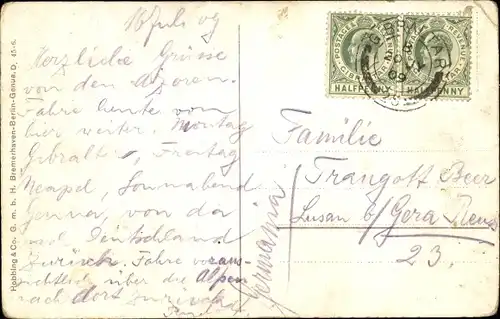 16 Juli 09
Herzliche Grüsse
von den Azoren.
Fahre heute von
hier weiter. Montag
Gibraltar, Freitag
Neapel, Sonnabend
Genua, von da
nach Deutschland
zurück. Fahre voraus-
sichtlich über die Alpen
nach dort zurück
Germania
Hobbing & Co. G. m. b. H. Bremerhaven-Berlin-Genua. D, 45-6.
POSTAGE & REVENUE
GIBRALTAR
HALFPENNY
POSTAGE & REVENUE
GIBRALTAR
HALFPENNY
GIBRALTAR
09
Familie
Traugott Beer
Lusan b/ Gera Reuss
23.